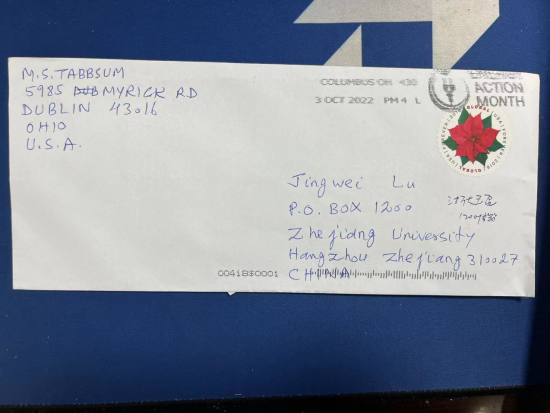 M.S. TABBSUM
5985 MYRICK RD
DUBLIN 43016
OHIO
U.S.A.
COLUMBUS OH 430
3 OCT 2022 PM 4 L
ACTION
MONTH
GLOBAL
Jingwei Lu
P.O. BOX 1200
Zhejiang University
Hangzhou Zhejiang 310027
CHINA
00418$0001